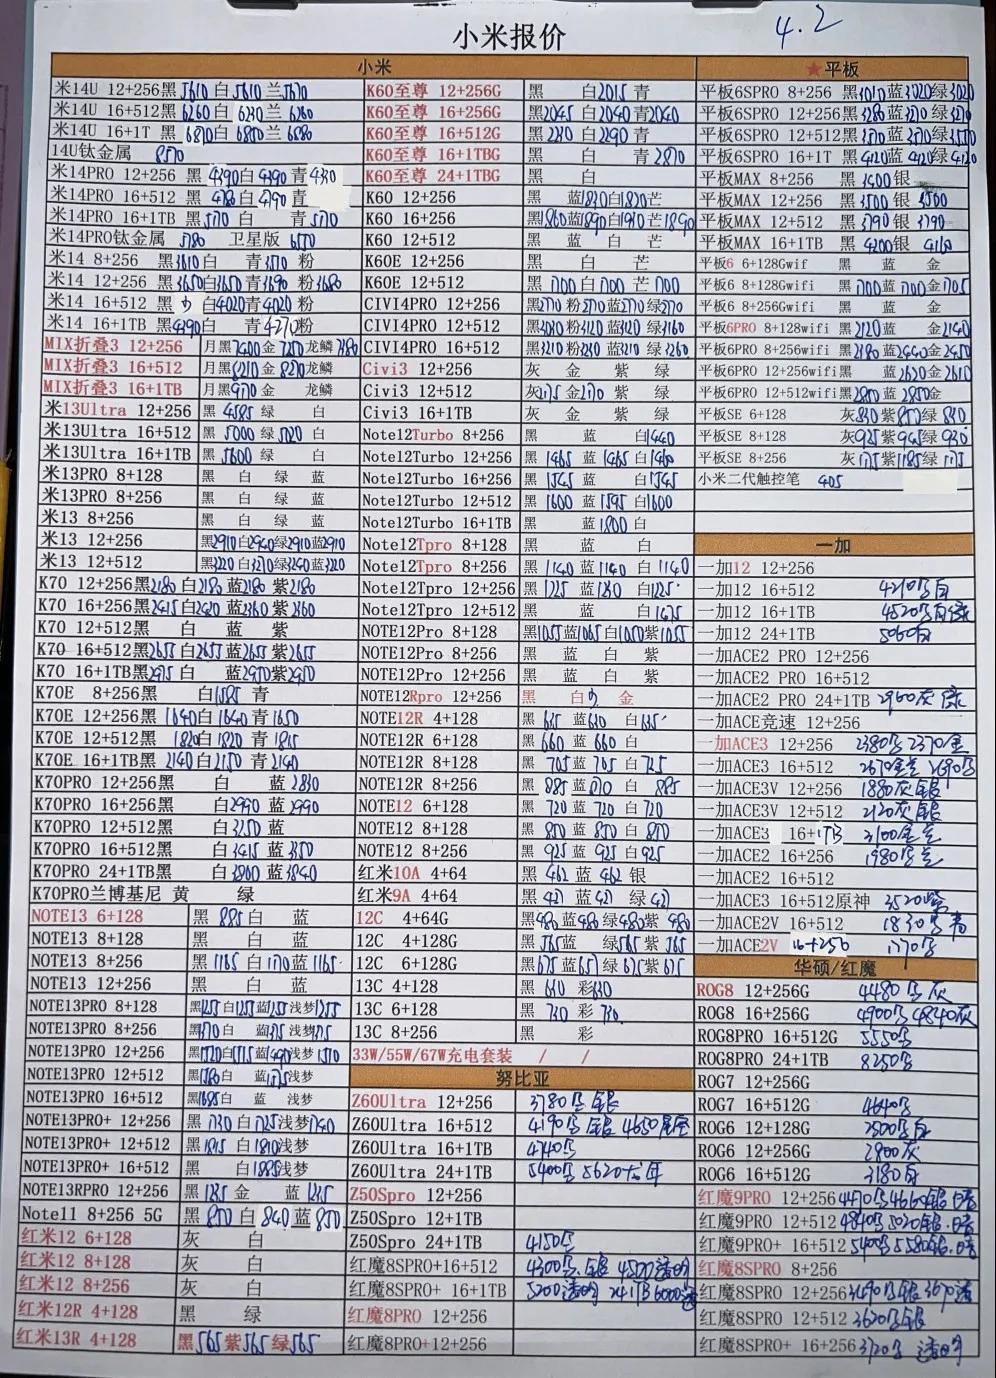 小米报价
4.2
小米
米14U 12+256 黑5610 白5610 兰5670
米14U 16+512 黑6260 白6230 兰6260
米14U 16+1T 黑6870 白6850 兰6880
14U钛金属 8570
米14PRO 12+256 黑4390 白4390 青4330
米14PRO 16+512 黑4780 白4790 青
米14PRO 16+1TB 黑5170 白 青5170
米14PRO钛金属 5780 卫星版 6550
米14 8+256 黑3610 白 青3570 粉
米14 12+256 黑3650 白3650 青3690 粉3680
米14 16+512 黑 白4020 青4020 粉
米14 16+1TB 黑4390 白 青4270 粉
MIX折叠3 12+256 月黑7400 金7250 龙鳞7380
MIX折叠3 16+512 月黑8210 金8270 龙鳞
MIX折叠3 16+1TB 月黑9170 金 龙鳞
米13Ultra 12+256 黑4585 绿 白
米13Ultra 16+512 黑5000 绿5120 白
米13Ultra 16+1TB 黑5600 绿 白
米13PRO 8+128 黑 白 绿 蓝
米13PRO 8+256 黑 白 绿 蓝
米13 8+256 黑 白 绿 蓝
米13 12+256 黑2910 白2940 绿2910 蓝2910
米13 12+512 黑3220 白3270 绿3240 蓝3220
K70 12+256 黑2180 白2185 蓝2180 紫2180
K70 16+256 黑2415 白2420 蓝2360 紫2360
K70 12+512 黑 白 蓝 紫
K70 16+512 黑2655 白2655 蓝2655 紫2655
K70 16+1TB 黑2975 白 蓝2950 紫2950
K70E 8+256 黑 白1585 青
K70E 12+256 黑1640 白1640 青1650
K70E 12+512 黑1820 白1820 青1815
K70E 16+1TB 黑2140 白2150 青2140
K70PRO 12+256 黑 白 蓝2830
K70PRO 16+256 黑 白2990 蓝2990
K70PRO 12+512 黑 白3250 蓝
K70PRO 16+512 黑 白3415 蓝3350
K70PRO 24+1TB 黑 白3800 蓝3840
K70PRO兰博基尼 黄 绿
NOTE13 6+128 黑885 白 蓝
NOTE13 8+128 黑 白 蓝
NOTE13 8+256 黑1165 白1170 蓝1165
NOTE13 12+256 黑 白 蓝
NOTE13PRO 8+128 黑1255 白1255 蓝1255 浅梦1255
NOTE13PRO 8+256 黑1370 白 蓝1375 浅梦1375
NOTE13PRO 12+256 黑1520 白1515 蓝1490 浅梦1510
NOTE13PRO 12+512 黑1580 白 蓝1575 浅梦
NOTE13PRO 16+512 黑1685 白 蓝 浅梦
NOTE13PRO+ 12+256 黑1730 白1725 浅梦1740
NOTE13PRO+ 12+512 黑1815 白1810 浅梦
NOTE13PRO+ 16+512 黑 白1985 浅梦
NOTE13RPRO 12+256 黑1235 金 蓝1235
Note11 8+256 5G 黑850 白840 蓝850
红米12 6+128 灰 白
红米12 8+128 灰 白
红米12 8+256 灰 白
红米12R 4+128 黑 绿
红米13R 4+128 黑565 紫565 绿565
K60至尊 12+256G 黑 白2015 青
K60至尊 16+256G 黑2045 白2040 青2040
K60至尊 16+512G 黑2230 白2290 青
K60至尊 16+1TBG 黑 白 青2870
K60至尊 24+1TBG 黑 白
K60 12+256 黑 蓝1820 白1820 芒
K60 16+256 黑1860 蓝1890 白1910 芒1890
K60 12+512 黑 蓝 白 芒
K60E 12+256 黑 白 芒
K60E 12+512 黑1700 白1700 芒1700
CIVI4PRO 12+256 黑2770 粉2710 蓝2770 绿2770
CIVI4PRO 12+512 黑3080 粉3120 蓝3120 绿3160
CIVI4PRO 16+512 黑3210 粉3230 蓝3210 绿3260
Civi3 12+256 灰 金 紫 绿
Civi3 12+512 灰2175 金2170 紫 绿
Civi3 16+1TB 灰 金 紫 绿
Note12Turbo 8+256 黑 蓝 白1440
Note12Turbo 12+256 黑1465 蓝1465 白1460
Note12Turbo 16+256 黑1545 蓝 白1545
Note12Turbo 12+512 黑1600 蓝1595 白1600
Note12Turbo 16+1TB 黑 蓝1800 白
Note12Tpro 8+128 黑 蓝 白
Note12Tpro 8+256 黑1140 蓝1140 白1140
Note12Tpro 12+256 黑1225 蓝1230 白1225
Note12Tpro 12+512 黑 蓝 白1475
NOTE12Pro 8+128 黑1055 蓝1065 白1050 紫1055
NOTE12Pro 8+256 黑 蓝 白 紫
NOTE12Pro 12+256 黑 蓝 白 紫
NOTE12Rpro 12+256 黑 白 金
NOTE12R 4+128 黑615 蓝610 白635
NOTE12R 6+128 黑660 蓝660 白
NOTE12R 8+128 黑705 蓝705 白725
NOTE12R 8+256 黑885 蓝870 白885
NOTE12 6+128 黑720 蓝720 白720
NOTE12 8+128 黑850 蓝850 白850
NOTE12 8+256 黑925 蓝925 白925
红米10A 4+64 黑462 蓝462 银
红米9A 4+64 黑421 蓝421 绿421
12C 4+64G 黑480 蓝480 绿480 紫480
12C 4+128G 黑565 蓝 绿565 紫565
12C 6+128G 黑675 蓝657 绿675 紫675
13C 4+128 黑610 彩630
13C 6+128 黑730 彩730
13C 8+256 黑 彩
33W/55W/67W充电套装 / /
努比亚
Z60Ultra 12+256 3780 黑 银
Z60Ultra 16+512 4190黑 银 4650星空
Z60Ultra 16+1TB 4740黑
Z60Ultra 24+1TB 5400黑 5620龙年
Z50Spro 12+256
Z50Spro 12+1TB
Z50Spro 24+1TB 4150黑
红魔8SPRO+16+512 4300黑.银 4500透明
红魔8SPRO+ 16+1TB 5200透明 24+1TB 6000透
红魔8PRO 12+256
红魔8PRO+12+256
★平板
平板6SPRO 8+256 黑3010 蓝3020 绿3020
平板6SPRO 12+256 黑3280 蓝3270 绿3270
平板6SPRO 12+512 黑3570 蓝3570 绿3550
平板6SPRO 16+1T 黑4120 蓝4120 绿4120
平板MAX 8+256 黑3400 银
平板MAX 12+256 黑3500 银3500
平板MAX 12+512 黑3790 银3790
平板MAX 16+1TB 黑4200 银4160
平板6 6+128Gwif 黑 蓝 金
平板6 8+128Gwif 黑1700 蓝1700 金1705
平板6 8+256Gwif 黑 蓝 金
平板6PRO 8+128wifi 黑2120 蓝 金2140
平板6PRO 8+256wifi 黑2380 蓝2440 金2450
平板6PRO 12+256wifi 黑 蓝2620 金2615
平板6PRO 12+512wifi 黑2850 蓝2850 金
平板SE 6+128 灰830 紫850 绿830
平板SE 8+128 灰925 紫945 绿930
平板SE 8+256 灰1175 紫1185 绿1175
小米二代触控笔 405
一加
一加12 12+256
一加12 16+512 4210黑白
一加12 16+1TB 4520黑白绿
一加12 24+1TB 5060白
一加ACE2 PRO 12+256
一加ACE2 PRO 16+512
一加ACE2 PRO 24+1TB 2960灰 绿
一加ACE竞速 12+256
一加ACE3 12+256 2380黑 2370金
一加ACE3 16+512 2670金蓝 2690黑
一加ACE3V 12+256 1880灰 银
一加ACE3V 12+512 2120灰 银
一加ACE3 16+1TB 3100金蓝
一加ACE2 16+256 1980黑蓝
一加ACE2 16+512
一加ACE3 16+512原神 3520紫
一加ACE2V 16+512 1830黑青
一加ACE2V 16+256 1770黑
华硕/红魔
ROG8 12+256G 4480黑 灰
ROG8 16+256G 4900黑 4840灰
ROG8PRO 16+512G 5550黑
ROG8PRO 24+1TB 8250黑
ROG7 12+256G
ROG7 16+512G 4640黑
ROG6 12+128G 2500黑白
ROG6 12+256G 2800灰
ROG6 16+512G 3180白
红魔9PRO 12+256 4410黑 4660银.暗
红魔9PRO 12+512 4840黑 5020银.暗
红魔9PRO+ 16+512 5400黑 5580银.暗
红魔8SPRO 8+256
红魔8SPRO 12+256 3490黑银 3670透
红魔8SPRO 12+512 3620黑银
红魔8SPRO+ 16+256 3720黑 透明